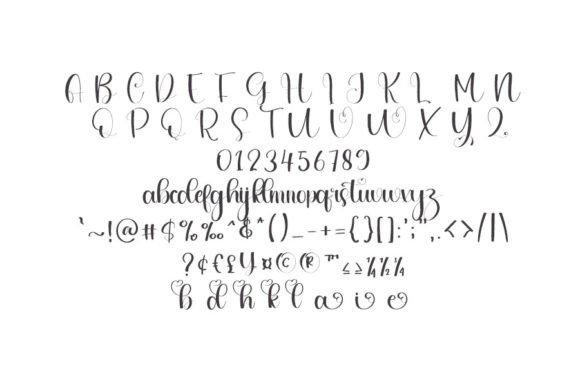 A B C D E F G H I J K L M N
O P Q R S T U V W X Y Z.
0123456789
abcdefghijklmnopqrstuvwxyz
`~!@#$%‰^&*()_-+={}[]:';",.<>/|\
?¢€£¥¤©®™≤≥¼½¼
b d h k l a i e